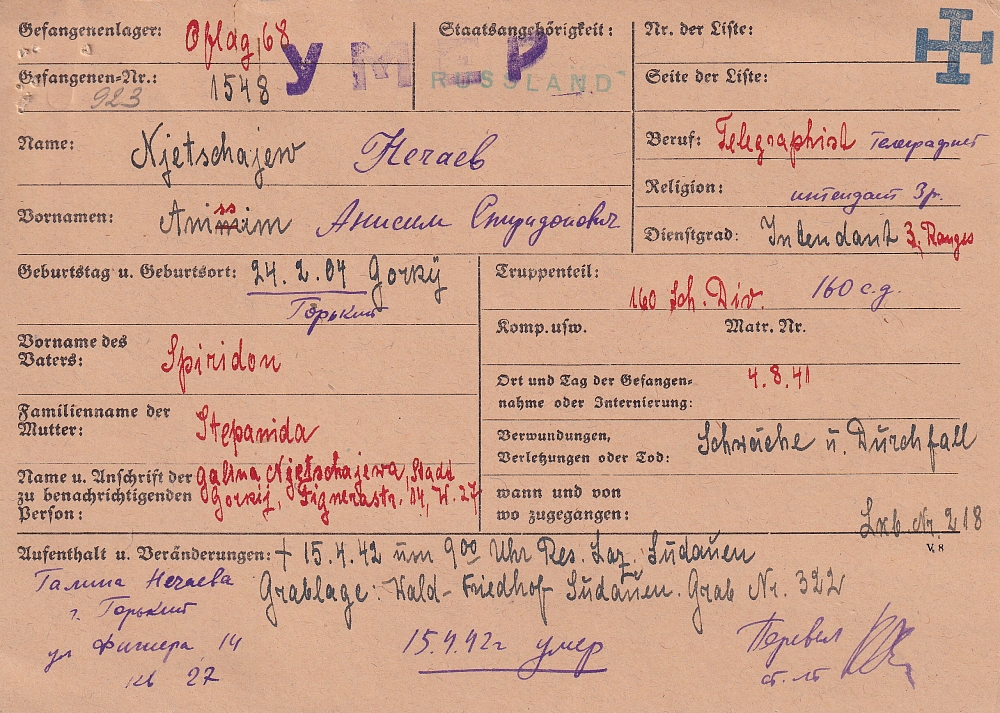 Gefangenenlager: Oflag 68
Staatsangehörigkeit: RUSSLAND
УМЕР
Nr. der Liste:
Gefangenen-Nr.: 1548
923
Seite der Liste:
Name: Njetschajew Нечаев
Beruf: Telegraphist телеграфист
Religion:
интендант 3 р.
Vornamen: Anissim Анисим Спиридонович
Dienstgrad: Intendant 3. Ranges
Geburtstag u. Geburtsort: 24.2.04 Gorkij
Горький
Truppenteil: 160 Sch. Div. 160 с.д.
Komp. usw. Matr. Nr.
Vorname des
Vaters: Spiridon
Ort und Tag der Gefangen-
nahme oder Internierung: 4.8.41
Familienname der
Mutter: Stepanida
Verwundungen,
Verletzungen oder Tod: Schwäche u. Durchfall
Name u. Anschrift der
zu benachrichtigenden
Person:
Galina Njetschajewa, Stadt
Gorkij, Fignerastr. 14, W. 27
wann und von
wo zugegangen:
Lxb. Nr. 218
V. 8
Aufenthalt u. Veränderungen: + 15.4.42 um 9⁰⁰ Uhr Res. Laz. Sudauen
Grablage: Wald-Friedhof Sudauen. Grab Nr. 322
Галина Нечаева
г. Горький
ул Фигнера 14
кв 27
15.4.42г умер
Перевел
ст. лт